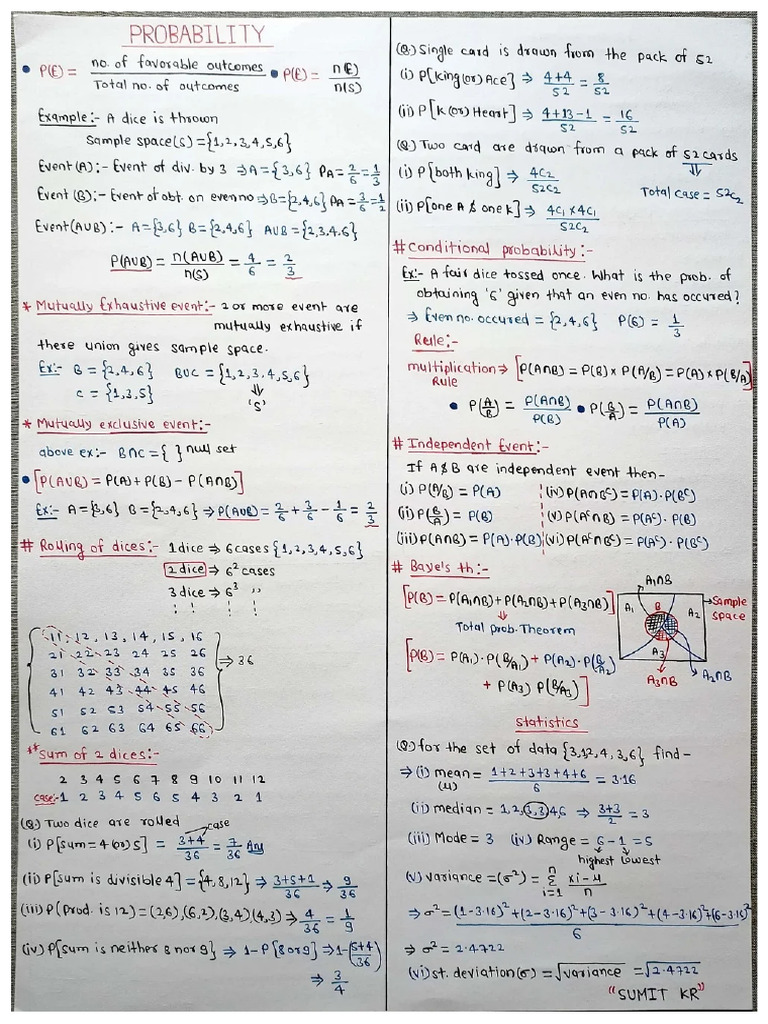 PROBABILITY
• P(E) = no. of favorable outcomes / Total no. of outcomes • P(E) = n(E) / n(S)
Example:- A dice is thrown
Sample space(s) = {1,2,3,4,5,6}
Event(A):- Event of div. by 3 ⇒ A = {3,6} PA = 2/6 = 1/3
Event (B):- Event of obt. on even no ⇒ B = {2,4,6} PA = 3/6 = 1/2
Event(AUB):- A = {3,6} B = {2,4,6} AUB = {2,3,4.6}
P(AUB) = n(AUB) / n(S) = 4/6 = 2/3
* Mutually Exhaustive event:- 2 or more event are
mutually exhaustive if
there union gives sample space.
Ex:- B = {2,4,6} BUC = {1,2,3,4,5,6}
C = {1,3,5} ⇓ 'S'
* Mutually exclusive event:-
above ex:- B∩C = { } null set
• [P(AUB) = P(A) + P(B) - P(A∩B)]
Ex:- A = {3,6} B = {2,4,6} ⇒ P(AUB) = 2/6 + 3/6 - 1/6 = 2/3
# Rolling of dices:- 1 dice ⇒ 6 cases {1,2,3,4,5,6}
2 dice ⇒ 6² cases
3 dice ⇒ 6³ ,,
11, 12, 13, 14, 15, 16
21 22 23 24 25 26
31 32 33 34 35 36 ⇒ 36
41 42 43 44 45 46
51 52 53 54 55 56
61 62 63 64 65 66
** Sum of 2 dices:-
2 3 4 5 6 7 8 9 10 11 12
case:- 1 2 3 4 5 6 5 4 3 2 1
(Q:) Two dice are rolled case
(i) P[sum = 4 (or) 5] = 3+4 / 36 = 7/36 Ans
(ii) P[sum is divisible 4] = {4,8,12} ⇒ 3+5+1 / 36 ⇒ 9/36
(iii) P(prod. is 12) = (2,6), (6,2), (3,4), (4,3) ⇒ 4/36 = 1/9
(iv) P[sum is neither 8 nor 9] ⇒ 1-P[8 or 9] ⇒ 1-(5+4 / 36)
⇒ 3/4
(Q:) Single card is drawn from the pack of 52
(i) P[king (or) Ace] ⇒ 4+4 / 52 = 8/52
(ii) P[k (or) Heart] ⇒ 4+13-1 / 52 = 16/52
(Q:) Two card are drawn from a pack of 52 cards
(i) P[both king] ⇒ 4C2 / 52C2 ⇓ Total case = 52C2
(ii) P[one A & one K] ⇒ 4C1 x 4C1 / 52C2
# Conditional probability:-
Ex:- A fair dice tossed once. What is the prob. of
obtaining '6' given that an even no. has occured?
⇒ Even no. occured = {2,4,6} P(6) = 1/3
Rule:-
multiplication Rule ⇒ [P(A∩B) = P(B) x P(A/B) = P(A) x P(B/A)]
• P(A/B) = P(A∩B) / P(B) • P(B/A) = P(A∩B) / P(A)
# Independent Event:-
If A & B are independent event then-
(i) P(A/B) = P(A) (iv) P(A∩Bᶜ) = P(A).P(Bᶜ)
(ii) P(B/A) = P(B) (v) P(Aᶜ∩B) = P(Aᶜ).P(B)
(iii) P(A∩B) = P(A).P(B) (vi) P(Aᶜ∩Bᶜ) = P(Aᶜ).P(Bᶜ)
# Baye's th:-
[P(B) = P(A1∩B) + P(A2∩B) + P(A3∩B)]
Total prob. Theorem
[P(B) = P(A1).P(B/A1) + P(A2).P(B/A2)
+ P(A3) P(B/A3)]
A1∩B
A1 B A2 Sample space
A3
A3∩B A2∩B
Statistics
(Q:) for the set of data {3,1,2,4,3,6} find-
⇒ (i) mean (μ) = 1+2+3+3+4+6 / 6 = 3.16
(ii) median = 1,2,3,3,4,6 ⇒ 3+3 / 2 = 3
(iii) Mode = 3 (iv) Range = 6 - 1 = 5
highest lowest
(v) variance = (σ²) = n Σ i=1 xi-μ / n
⇒ σ² = (1-3.16)² + (2-3.16)² + (3-3.16)² + (4-3.16)² + (6-3.16)² / 6
⇒ σ² = 2.4722
(vi) st. deviation(σ) = √variance = √2.4722
"SUMIT KR"